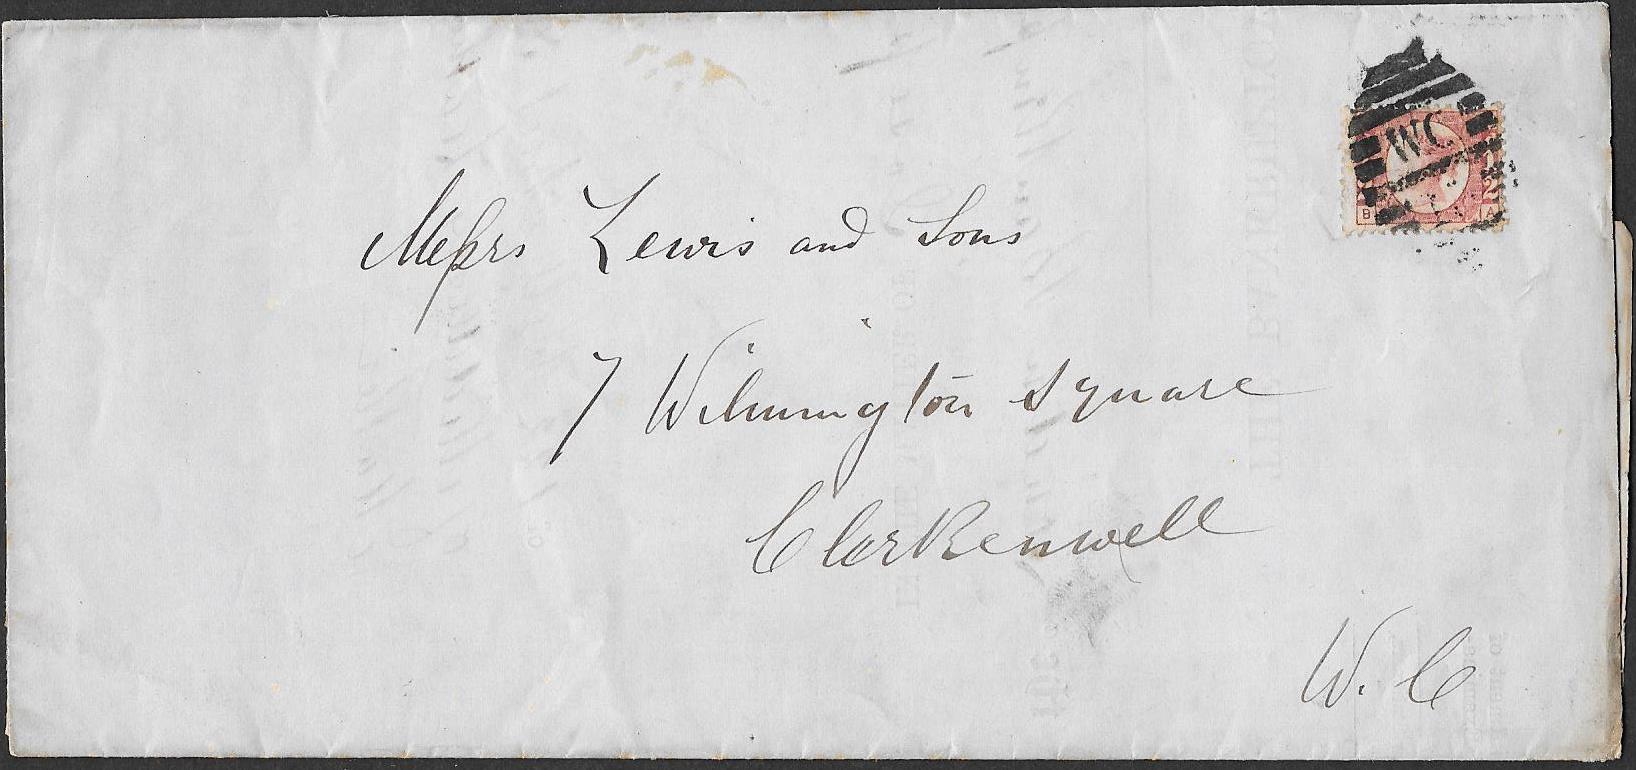 WC
½
B A
Messrs Lewis and Sons
7 Wilmington Square
Clerkenwell
W. C